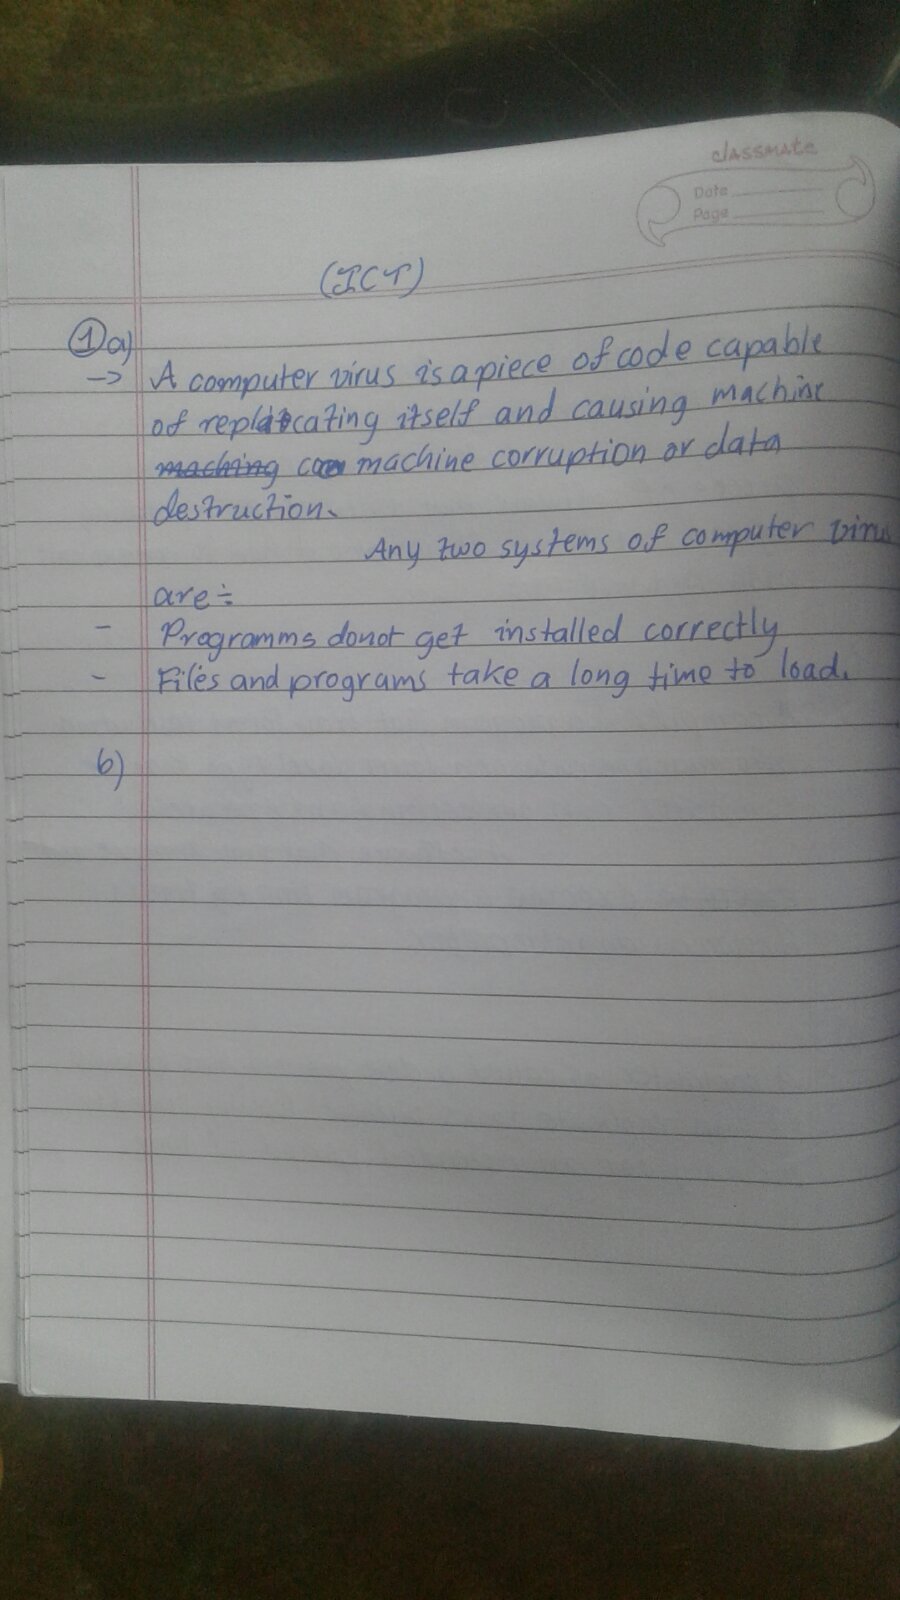 classmate
Date
Page
(ICT)
① a)
→ A computer virus is a piece of code capable
of replicating itself and causing machine
maching machine corruption or data
destruction.
Any two systems of computer virus
are÷
- Programms donot get installed correctly
- Files and programs take a long time to load.
b)